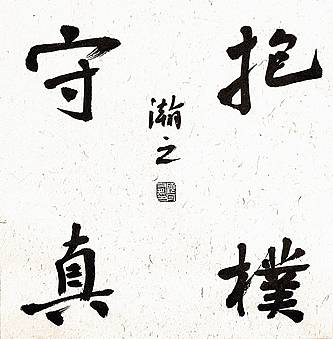 抱樸
守真
瀚之